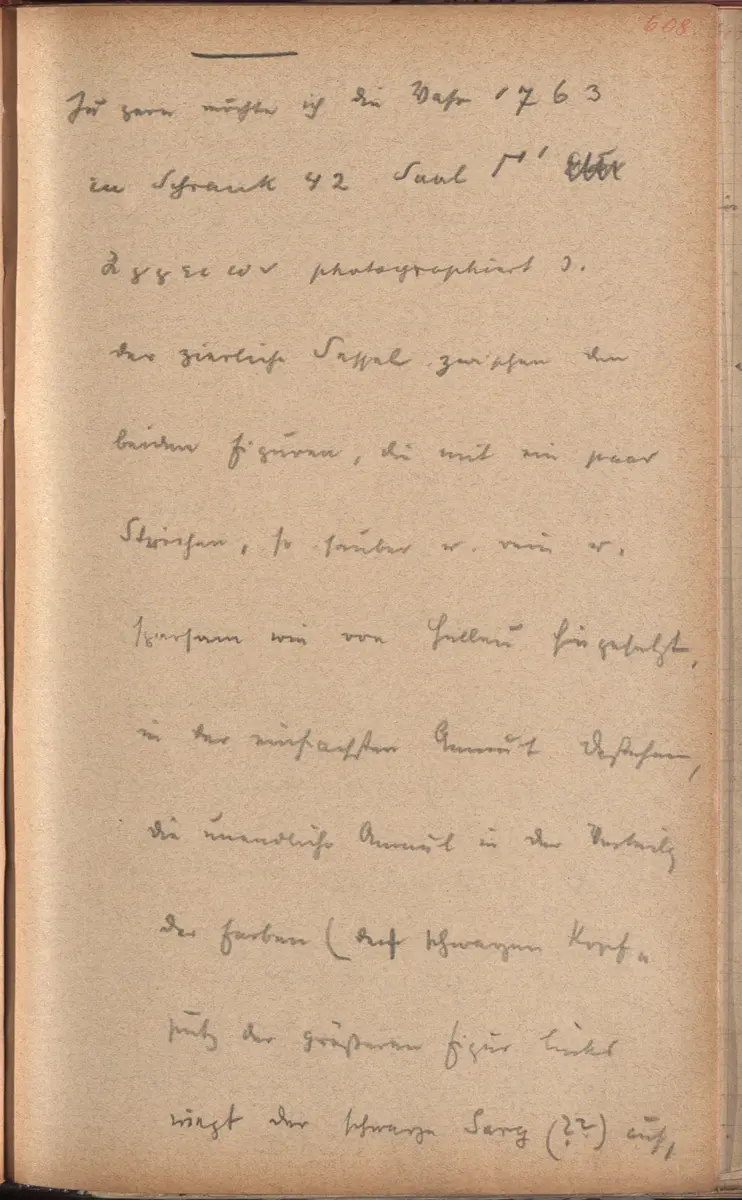 608
Zu gern möchte ich die Vase 1763
in Schrank 42 Saal Γ'
Αγγειων photographiert).
der zierliche Sessel zwischen den
beiden Figuren, die mit ein paar
Strichen, so sauber u. rein u.
sparsam wie von Helleu hingesetzt,
in der einfachsten Anmut dastehen,
die unendliche Anmut in der Verteilg
der Farben (den schwarzen Kopf-
putz der größeren Figur links
wiegt der schwarze Sarg (??) auf,